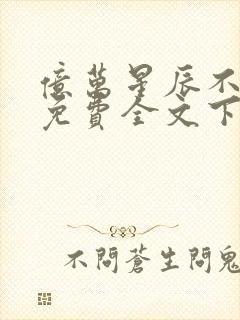 億萬星辰不
免費全文下
不問蒼生問鬼